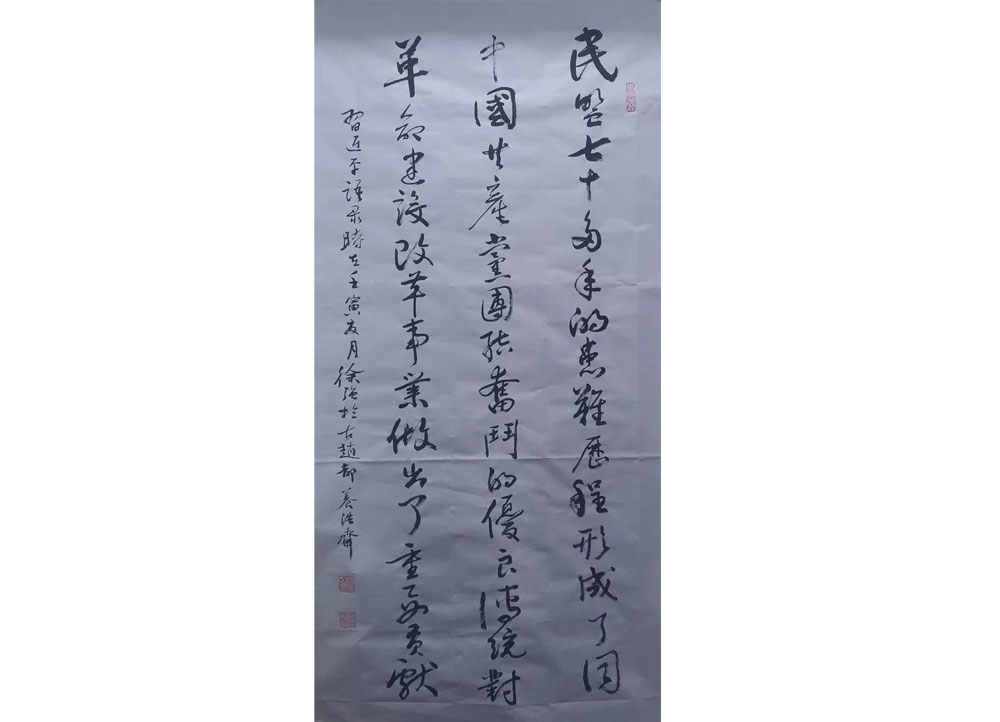 民盟七十多年的患難歷程形成了同
中國共產黨團結奮鬥的優良傳統對
革命建設改革事業做出了重要貢獻
習近平語录時在壬寅夏月徐強於古趙都養浩齋